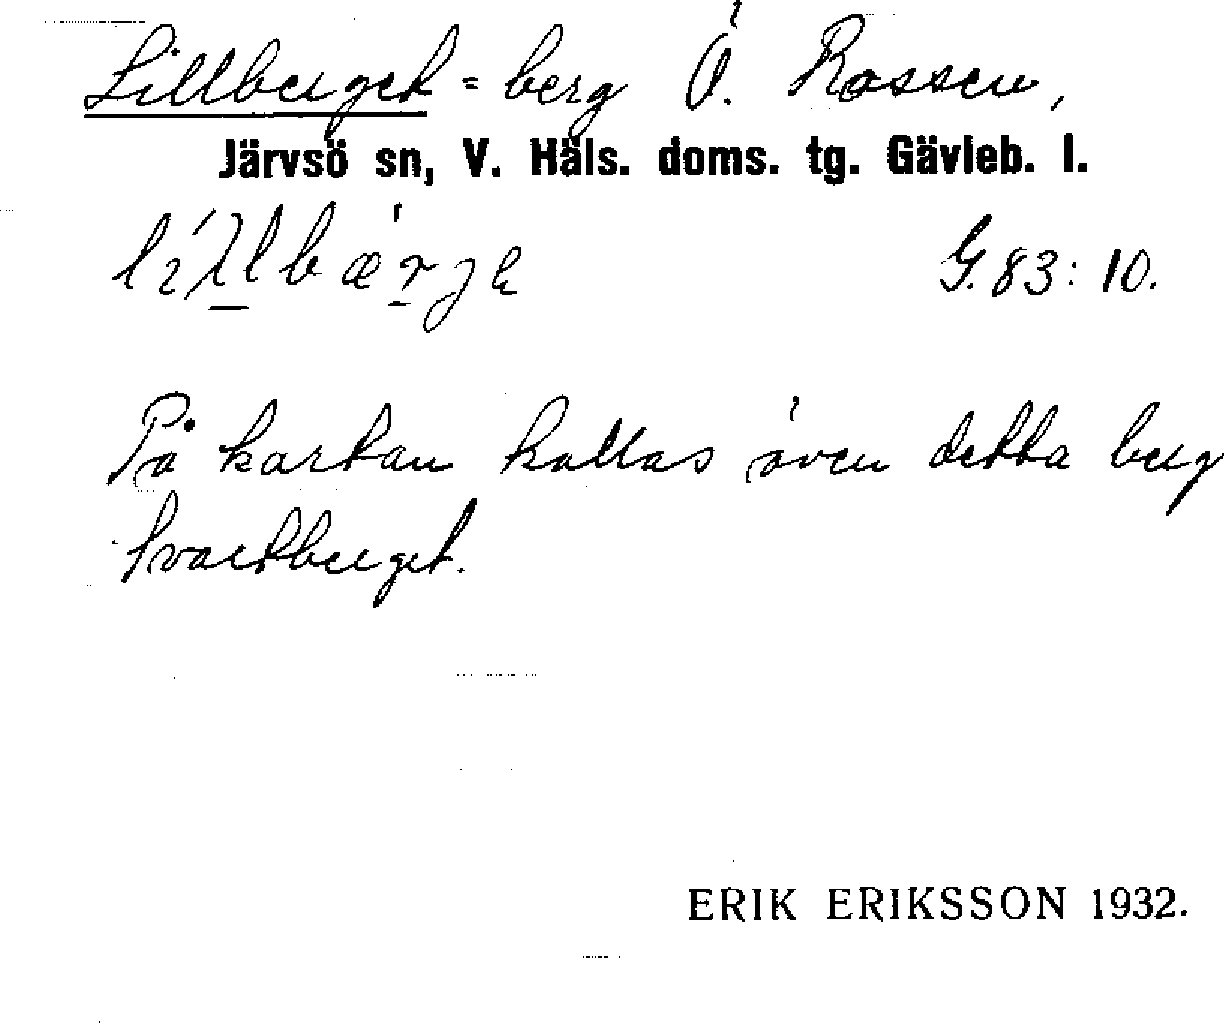 Lillberget = berg Ö. Rossen,
Järvsö sn, V. Häls. doms. tg. Gävleb. l.
G. 83: 10.
På kartan kallas även detta berg
Svartberget.
ERIK ERIKSSON 1932.